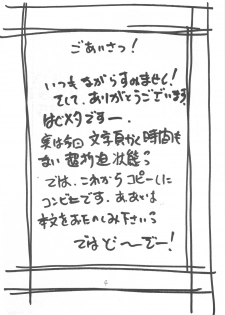 ごあいさつ!
いつもながらすみません!
そして、ありがとうございます
はじメタですー。
実は今回 文字頁かく時間も
ない 超切迫状態っ
では、これからコピーしに
コンビニです。ああとは
本文をおたのしみ下さいっ
ではど〜ぞー!